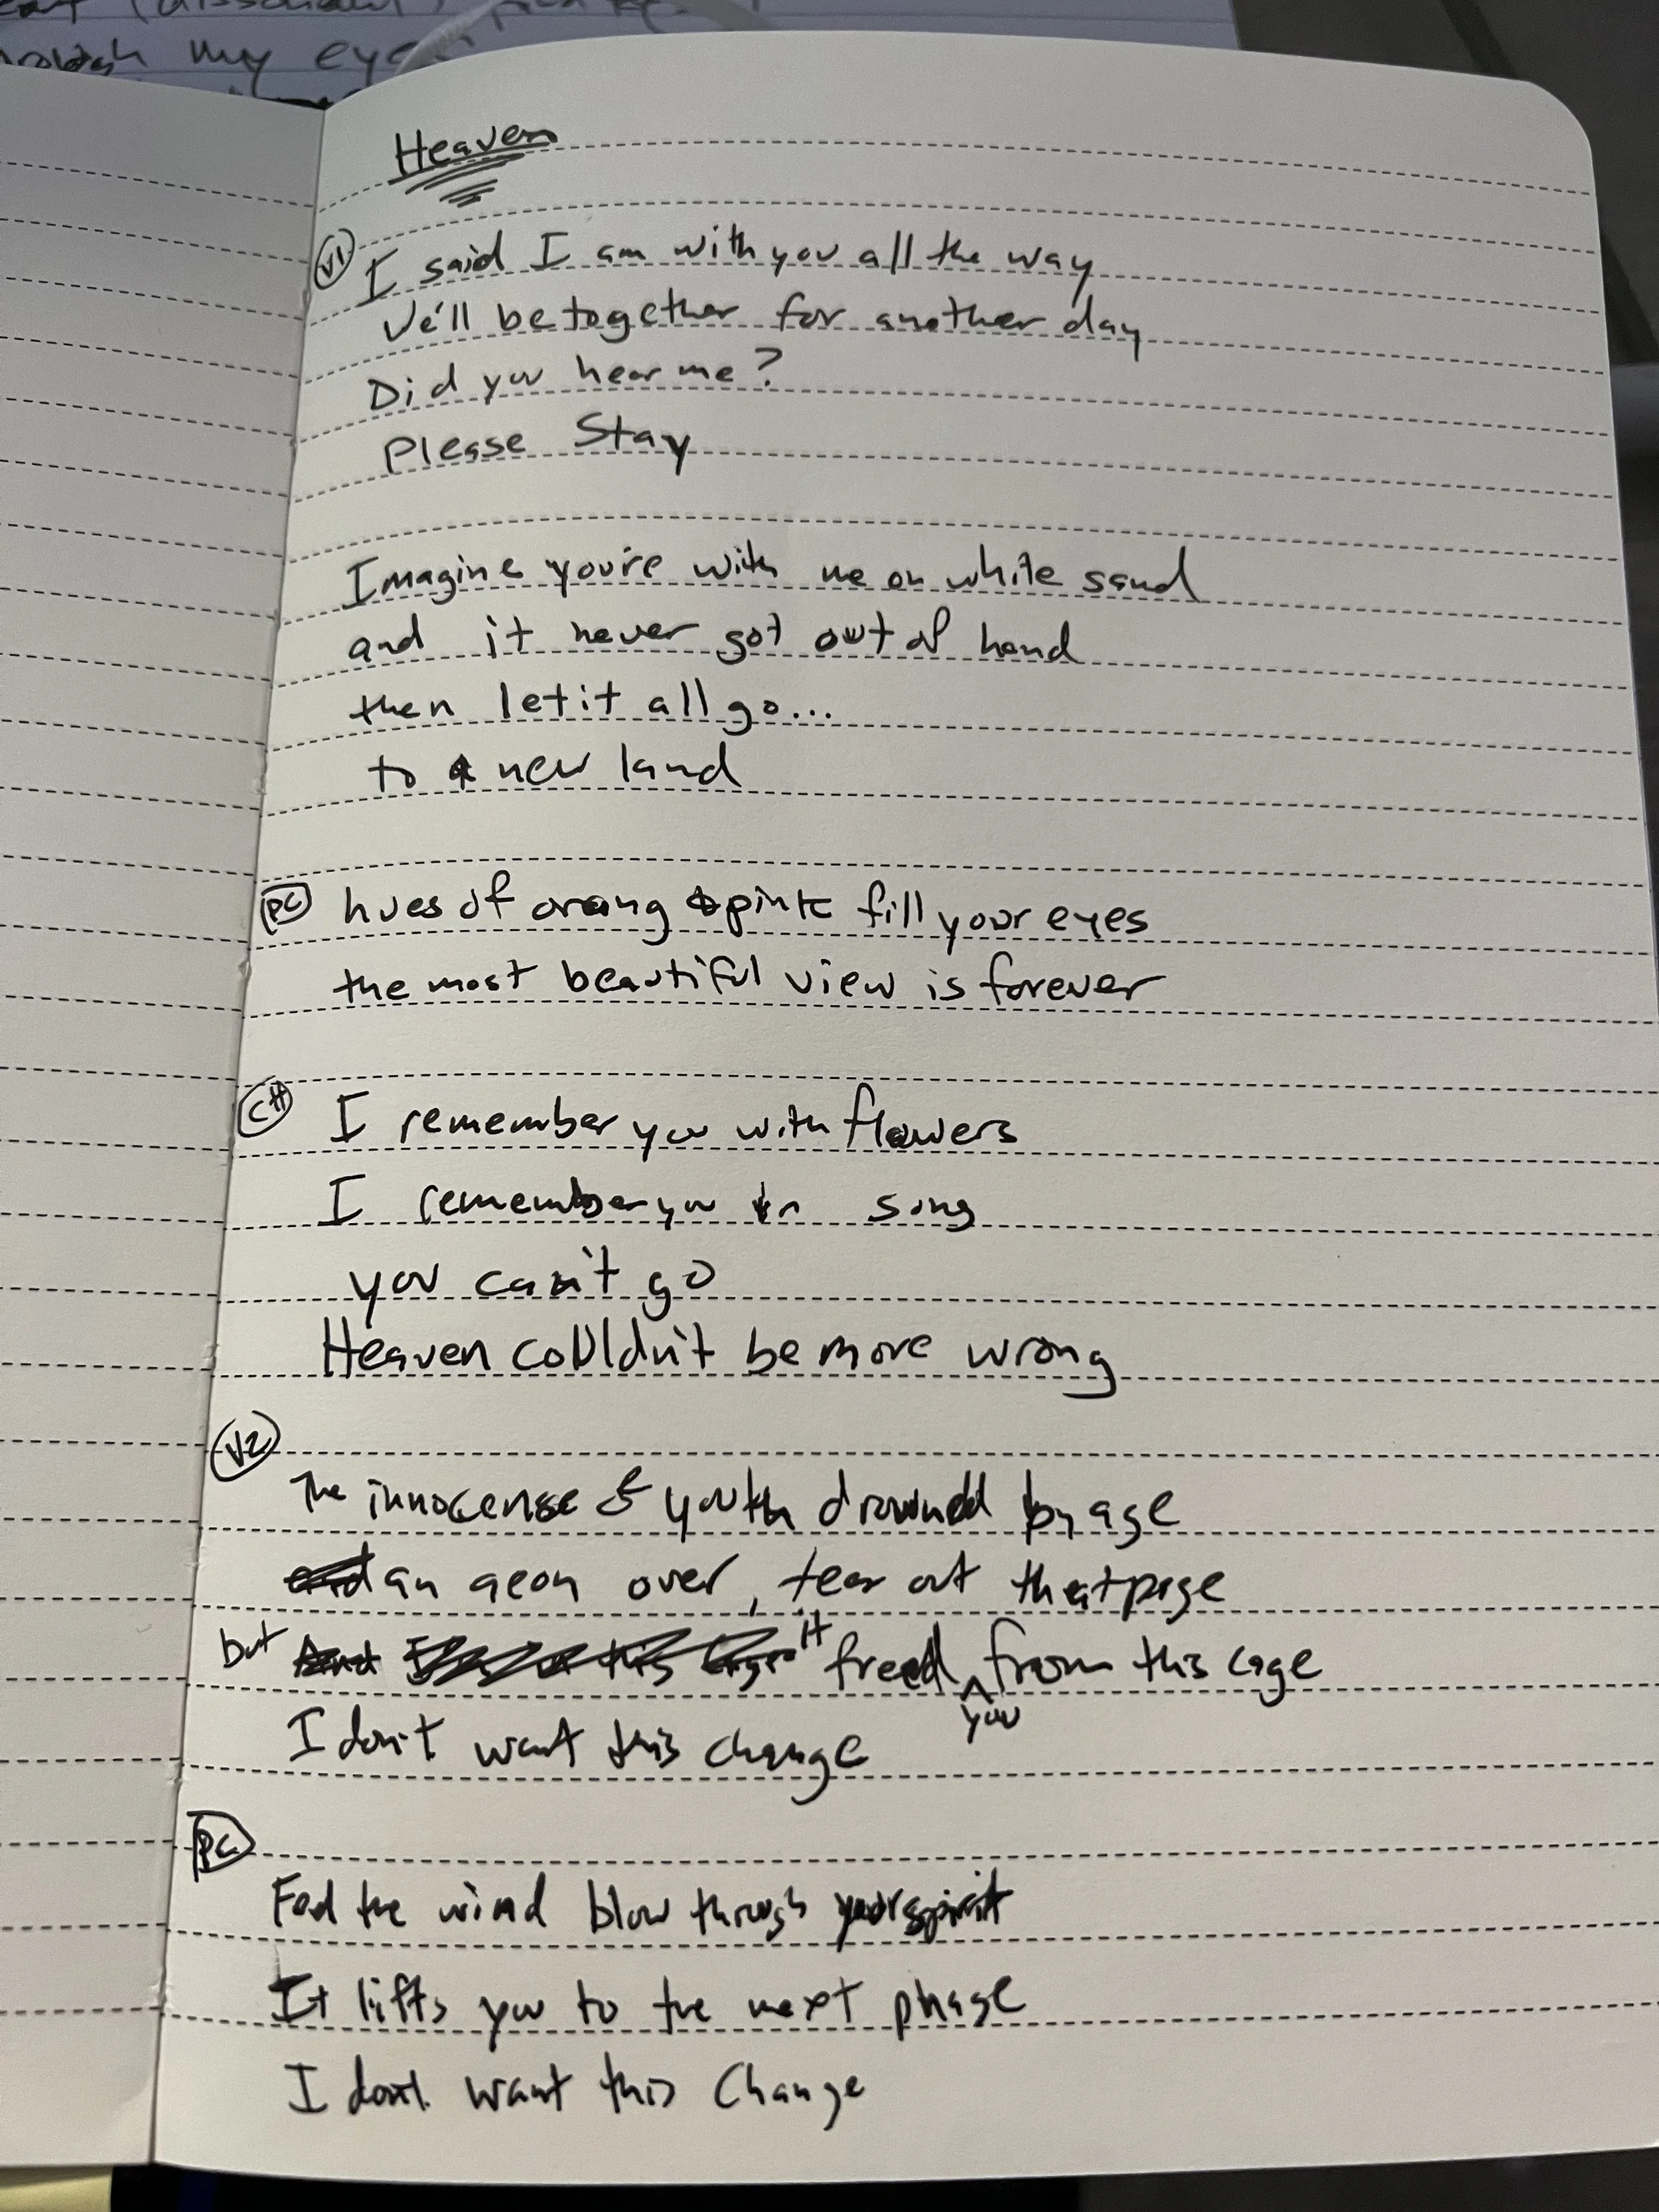 through my eyes
Heaven
V1 I said I am with you all the way
We'll be together for another day
Did you hear me?
Please Stay
Imagine you're with me on white sand
and it never got out of hand
then let it all go...
to a new land
PC hues of orang & pink fill your eyes
the most beautiful view is forever
CH I remember you with flowers
I remember you in song
you can't go
Heaven couldn't be more wrong
V2
The innocense & youth drowned by age
an aeon over, tear out that page
but it freed you from this cage
I don't want this change
PC
Feel the wind blow through your spirit
It lifts you to the next phase
I don't want this Change